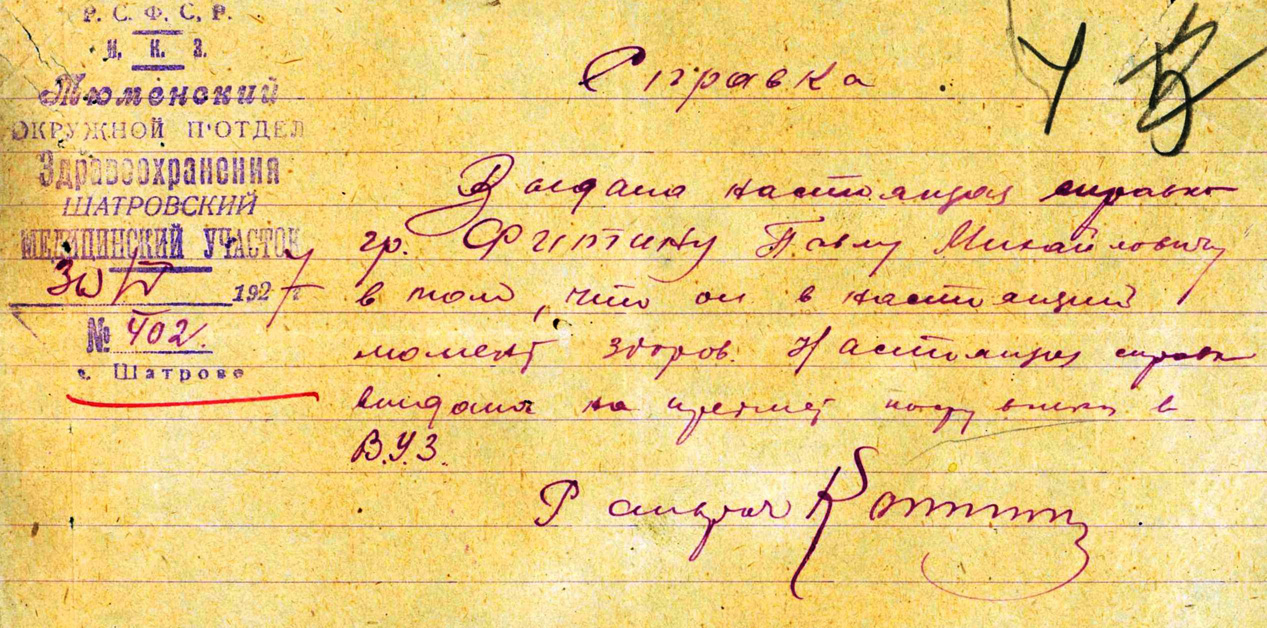 Р. С. Ф. С. Р.
Н. К. З.
Тюменский
ОКРУЖНОЙ П'ОТДЕЛ
Здравоохранения
ШАТРОВСКИЙ
МЕДИЦИНСКИЙ УЧАСТОК
30/VI 1927 г
№ 402.
с. Шатрове
Справка
Выдана настоящая справка
гр. Фитину Павлу Михайловичу
в том, что он в настоящий
момент здоров. Настоящая справка
выдана на предмет в
В.У.З.